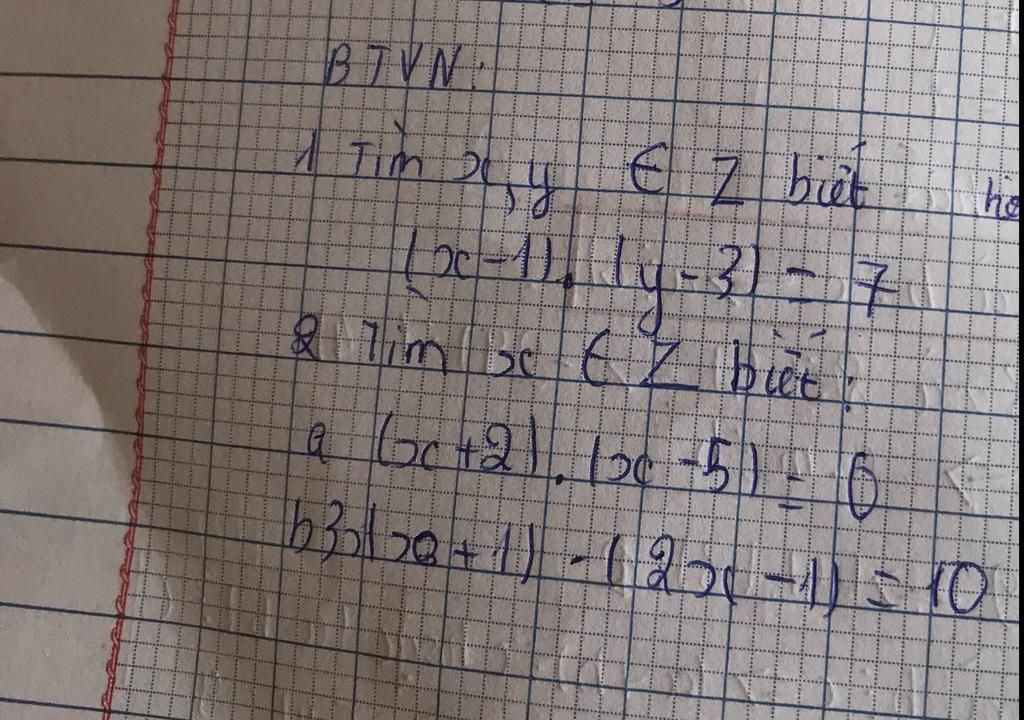 BTVN:
1 Tìm x, y ∈ Z biết
(x-1).(y-3) = 7
2 Tìm x ∈ Z biết:
a (x+2).(x-5) = 6
(x+1) - (2x-1) = 10